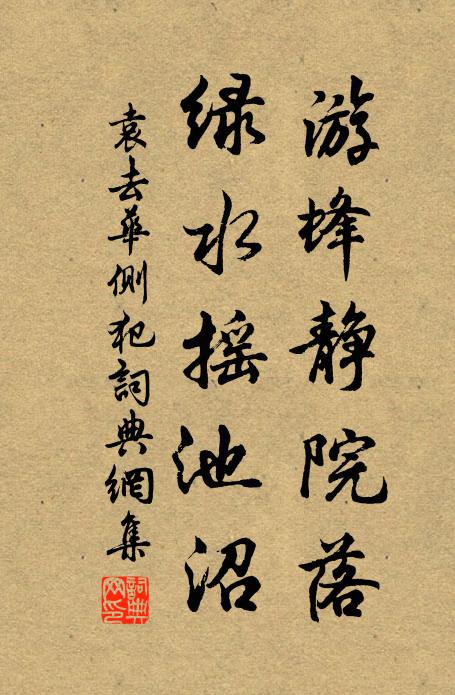 游蜂静院落
绿水摇池沼
袁去華側犯詞典網集
詞典网印